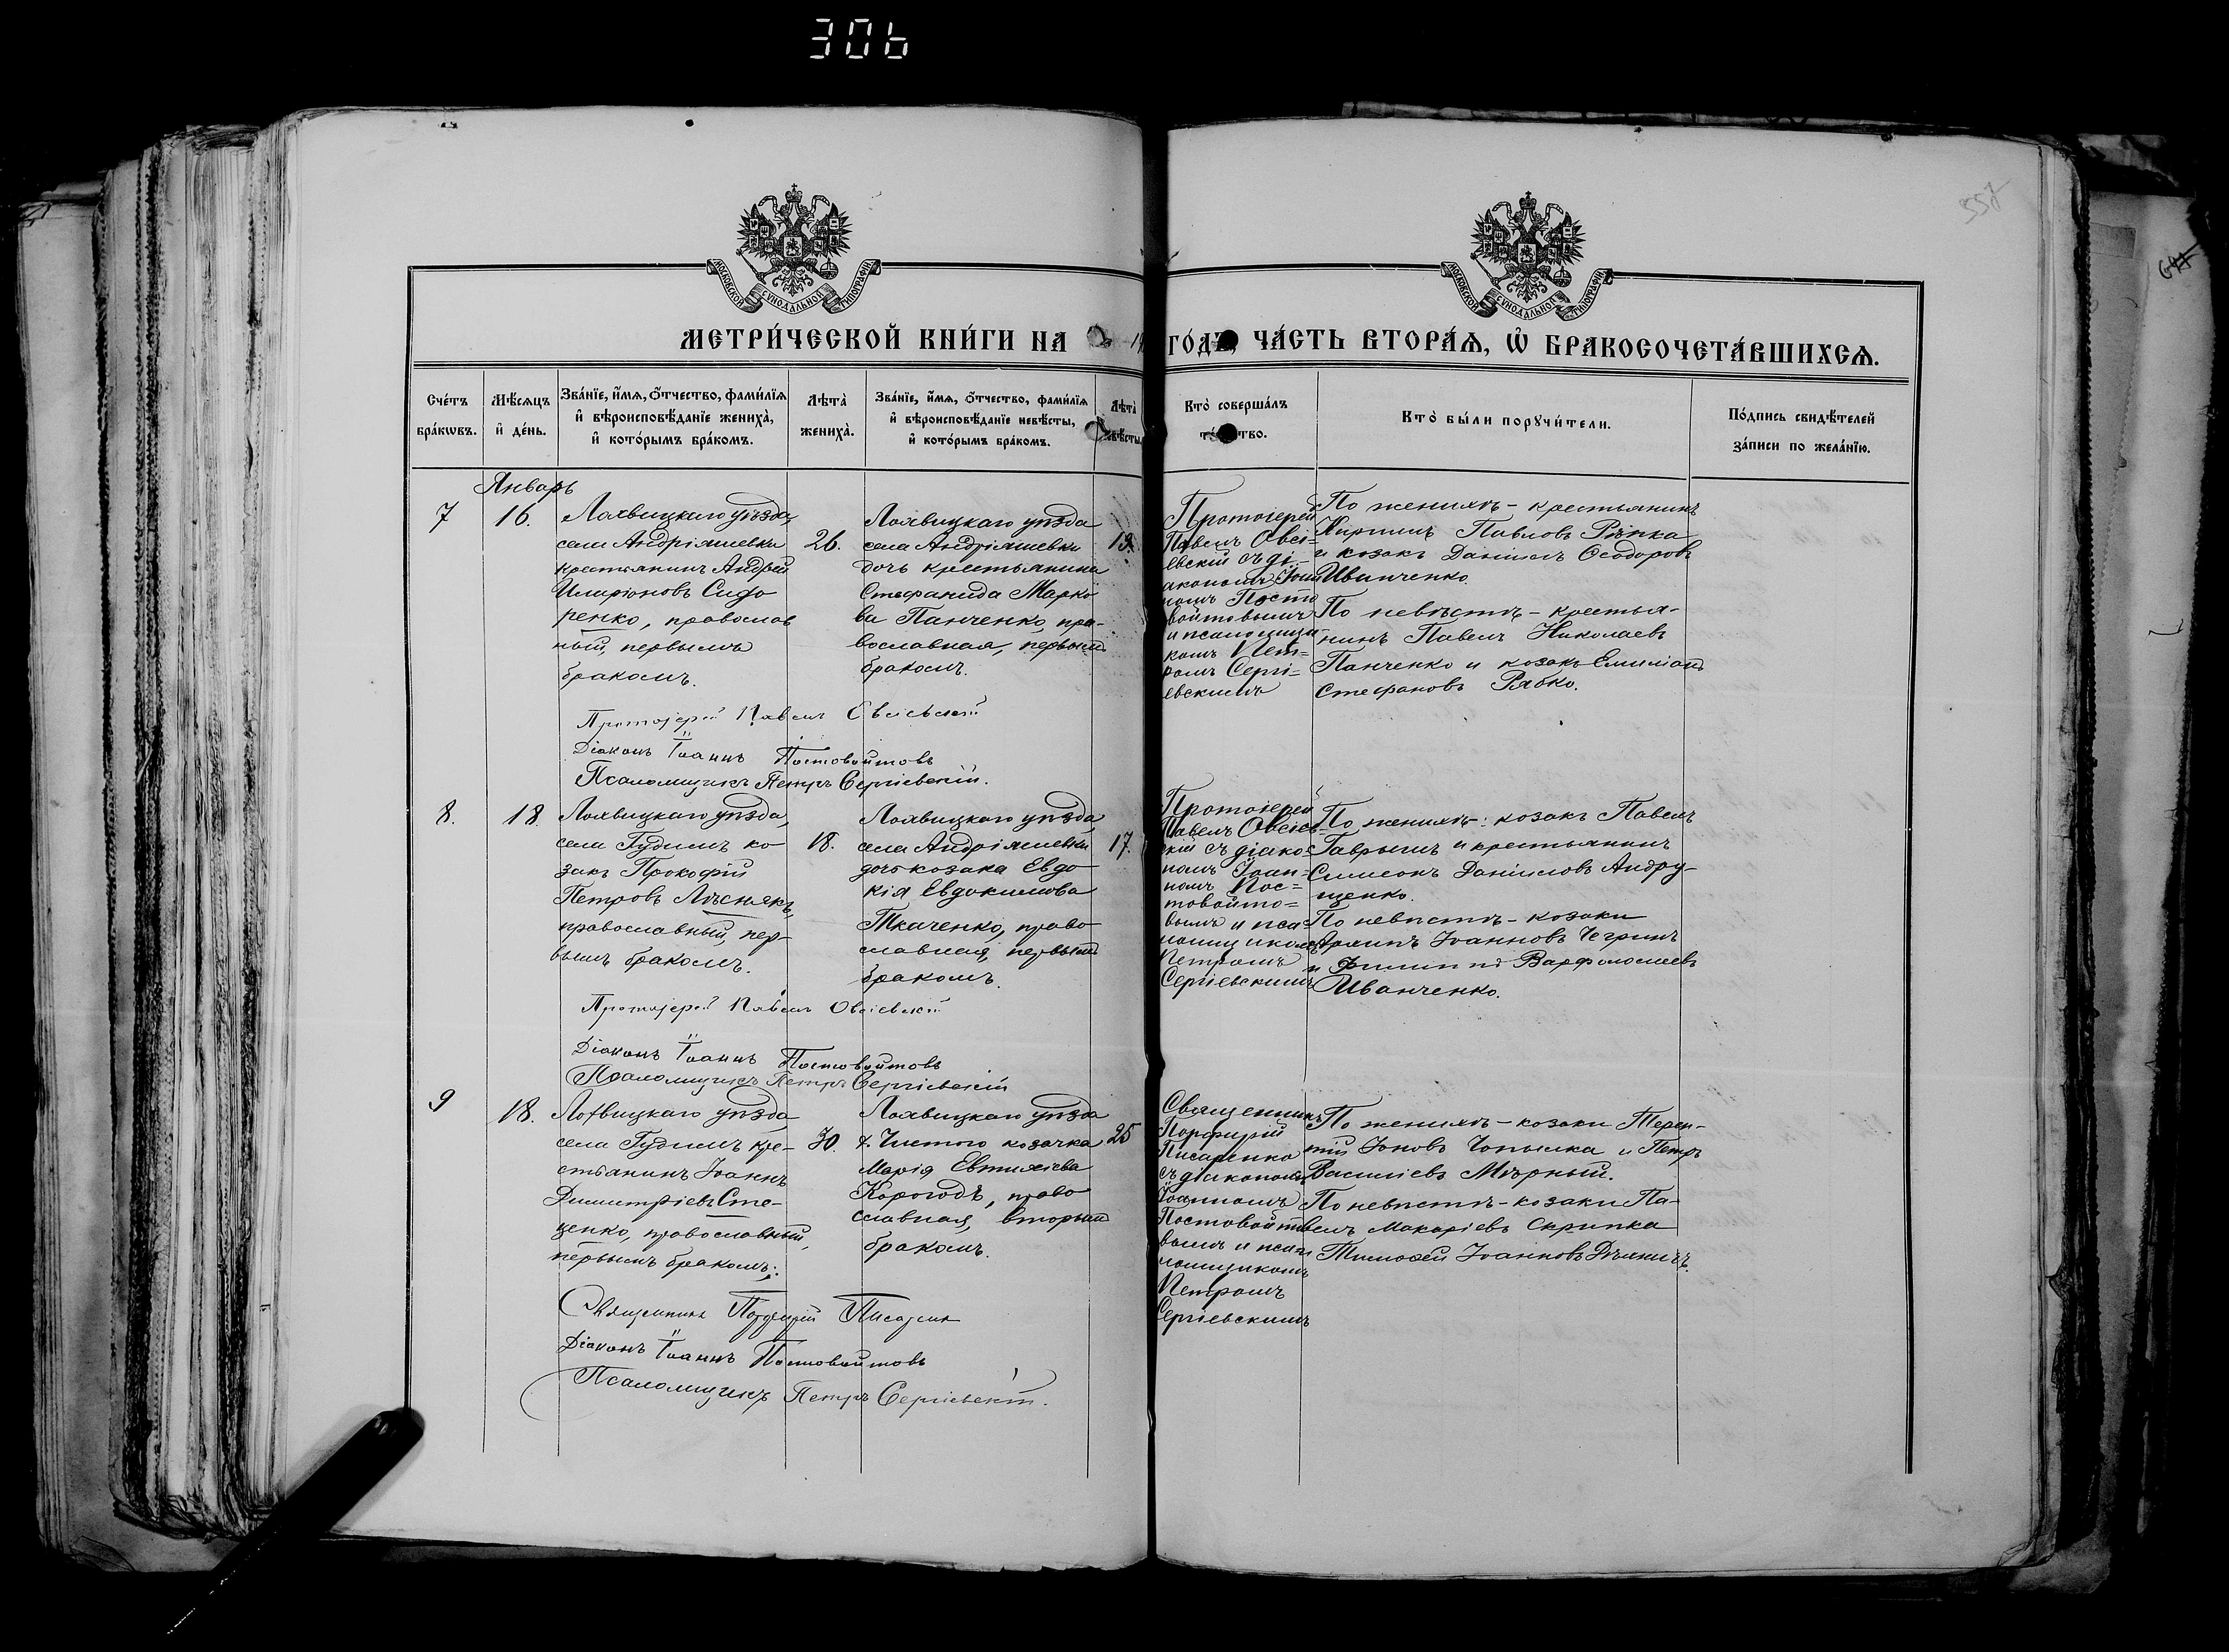 306
557
МОСКОВСКОЙ СѴНОДАЛЬНОЙ ТИПОГРАФІИ
МОСКОВСКОЙ СѴНОДАЛЬНОЙ ТИПОГРАФІИ
МЕТРИ́ЧЕСКОЙ КНИ́ГИ НА
ГО́ДЪ, ЧА́СТЬ ВТОРА́Ѧ, Ѡ҆ БРАКОСОЧЕТА́ВШИХСѦ.
Сче́тъ бра́кѡвъ.
Мѣ́сѧцъ и҆ де́нь.
Зва́нїе, и҆́мѧ, ѻ҆́тчество, фами́лїѧ
и҆ вѣроисповѣ́данїе жениха̀,
и҆ кото́рымъ бра́комъ.
Лѣта̀ жениха̀.
Зва́нїе, и҆́мѧ, ѻ҆́тчество, фами́лїѧ
и҆ вѣроисповѣ́данїе невѣ́сты,
и҆ кото́рымъ бра́комъ.
Лѣта̀
Кто̀ соверша́лъ
Кто̀ бы́ли порꙋчи́тели.
По́дпись свидѣ́телей
за́писи по жела́нїю.
Январь
7
16.
Лохвицкаго уѣзда,
села Андріяшевки
крестьянинъ Андрей
Иларіоновъ Сидо
ренко, православ
ный, первымъ
бракомъ.
26.
Лохвицкаго уѣзда
села Андріяшевки
дочь крестьянина
Стефанида Марко
ва Панченко, пра-
вославная, первымъ
бракомъ.
Протоіерей
Павелъ Овсі=
евскій съ ді-
акономъ Іоан
номъ Посто
войтовымъ
и псаломщи
комъ Пет=
ромъ Сергі=
евскимъ
По женихѣ - крестьянинъ
Кириллъ Павловъ Рѣпка
и козакъ Даніилъ Ѳеодоровъ
Иванченко.
По невѣстѣ - крестья-
нинъ Павелъ Николаевъ
Панченко и козакъ Емиліанъ
Стефановъ Рябко.
Протоіерей Павелъ Овсіевскій
Діаконъ Іоаннъ Постовойтовъ
Псаломщикъ Петръ Сергіевскій.
8.
18.
Лохвицкаго уѣзда,
села Гудимъ ко
закъ Прокофій
Петровъ Лѣснякъ,
православный, пер-
вымъ бракомъ.
18.
Лохвицкаго уѣзда,
села Андріяшевки
дочь козака Евдо
кія Евдокимова
Ткаченко, право
славная, первымъ
бракомъ.
17.
Протоіерей
Павелъ Овсіев
скій съ діако
номъ Іоан=
номъ Пос=
товойто=
вымъ и пса
ломщикомъ
Петромъ
Сергіевскимъ
По женихѣ: козакъ Павелъ
Гаврышъ и крестьянинъ
Симеонъ Даніиловъ Андру-
щенко.
По невѣстѣ - козаки
Іоанновъ Чегринъ
и Филиппъ Варфоломеевъ
Иванченко.
Протоіерей Павелъ Овсіевскій
Діаконъ Іоаннъ Постовойтовъ
Псаломщикъ Петръ Сергіевскій
9
18.
Лохвицкаго уѣзда
села Гудимъ кре-
стьянинъ Іоаннъ
Димитріевъ Сте-
ценко, православный,
первымъ бракомъ.
30.
Лохвицкаго уѣзда
х. Чистого козачка
Марія Евтихіева
Корогодъ, право
славная, вторымъ
бракомъ.
25
Священникъ
Порфирій
Писаренко
съ діакономъ
Іоанномъ
Постовойто
вымъ и псал
омщикомъ
Петромъ
Сергіевскимъ
По женихѣ - козаки Терен-
тій Іоновъ Чопылка и Петръ
Василіевъ Мѣрный.
По невѣстѣ - козаки Па-
велъ Макаріевъ Скрипка
Тимофей Іоанновъ
Священникъ Порфирій Писаренко
Діаконъ Іоаннъ Постовойтовъ
Псаломщикъ Петръ Сергіевскій.